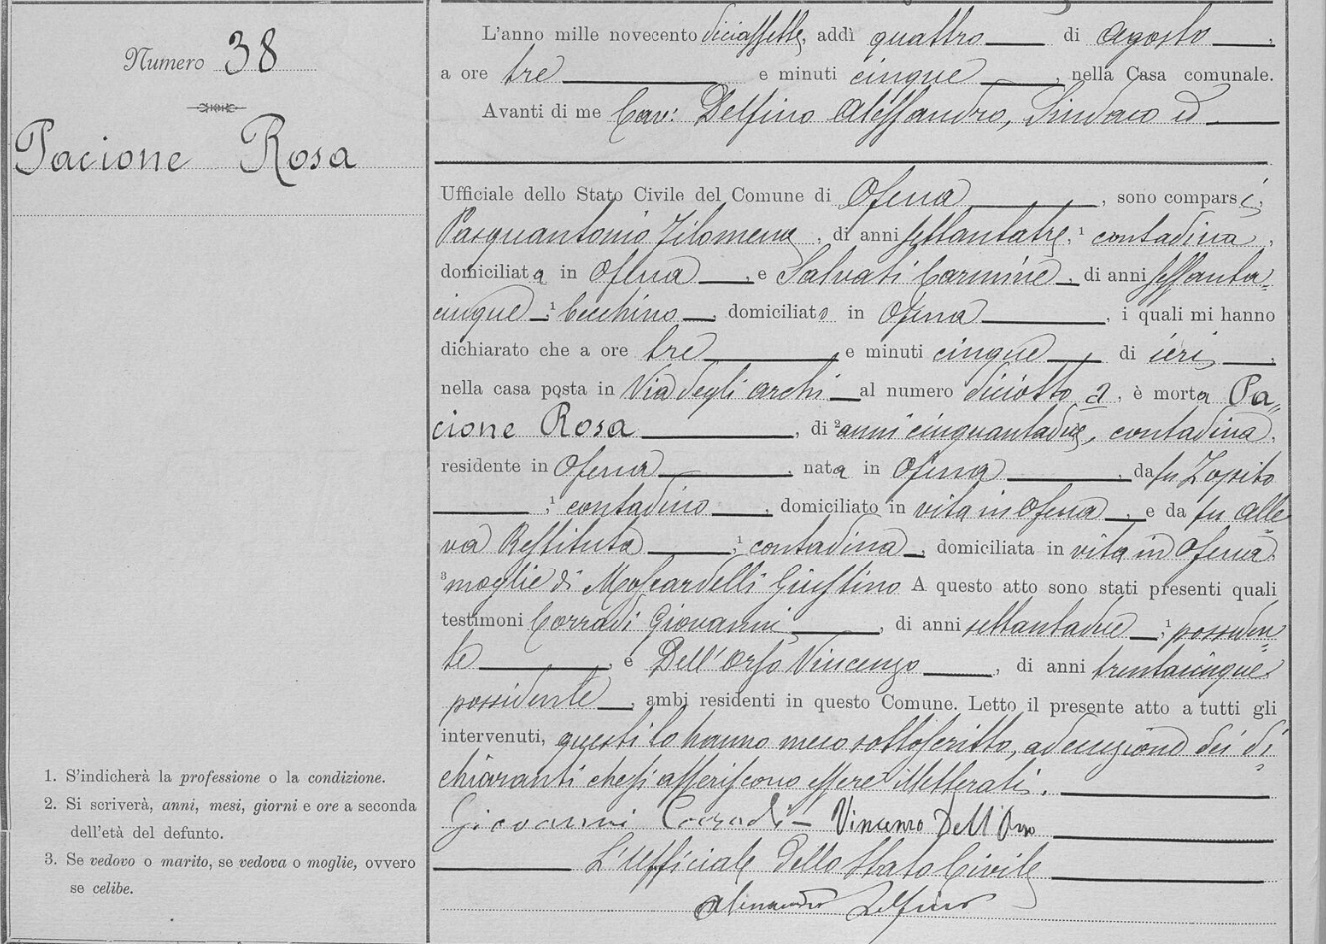 Numero 38
Pacione Rosa
1. S'indicherà la professione o la condizione.
2. Si scriverà, anni, mesi, giorni e ore a seconda
dell'età del defunto.
3. Se vedovo o marito, se vedova o moglie, ovvero
se celibe.
L'anno mille novecento diciassette, addì quattro di Agosto,
a ore tre e minuti cinque, nella Casa comunale.
Avanti di me Cav: Delfino Alessandro, Sindaco ed
Ufficiale dello Stato Civile del Comune di Ofena, sono comparsi,
Pasquantonio Filomena, di anni settantatre, ¹ contadina,
domiciliata in Ofena, e Salvati Carmine, di anni sessanta=
cinque ¹ becchino, domiciliato in Ofena, i quali mi hanno
dichiarato che a ore tre e minuti cinque di ieri,
nella casa posta in Via degli Archi al numero diciotto a, è morta Pa=
cione Rosa, di ² anni cinquantadue, contadina,
residente in Ofena, nata in Ofena, da fu Zopito
, ¹ contadino, domiciliato in vita in Ofena, e da fu Alle=
va Restituta, ¹ contadina, domiciliata in vita in Ofena.
³ moglie di Moscardelli Giustino A questo atto sono stati presenti quali
testimoni Corradi Giovanni, di anni settantadue, ¹ possiden=
te, e Dell'Orso Vincenzo, di anni trentacinque
possidente, ambi residenti in questo Comune. Letto il presente atto a tutti gli
intervenuti, questi lo hanno meco sottoscritto, ad eccezione dei di=
chiaranti che si asseriscono essere illetterati.
Giovanni Corradi – Vincenzo Dell'Orso
L'Ufficiale dello Stato Civile
Alessandro Delfino